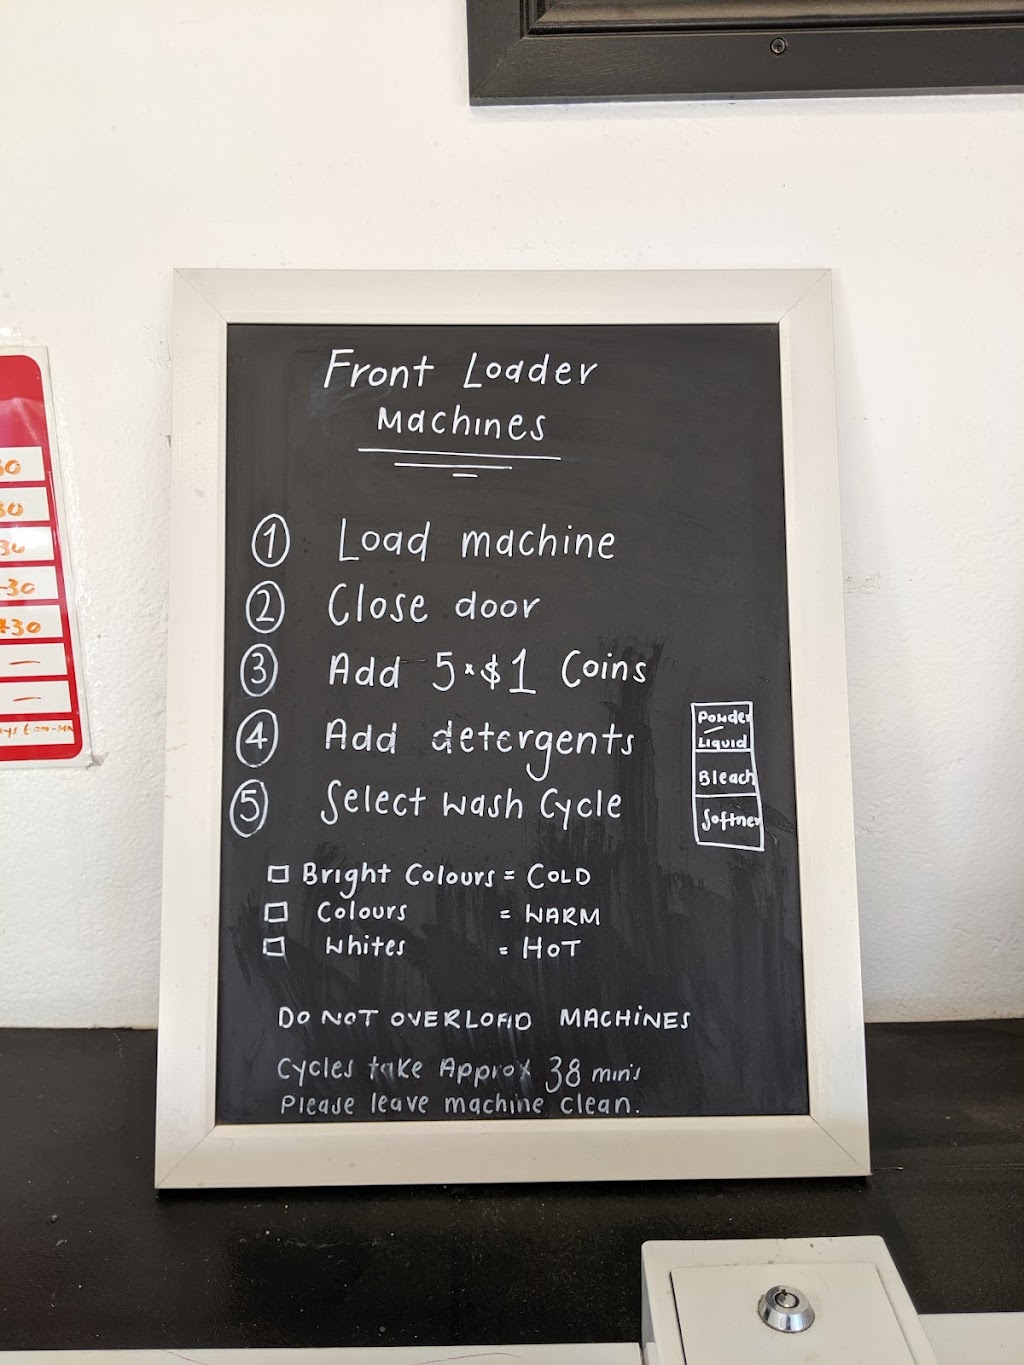 Front Loader
Machines
1 Load machine
2 Close door
3 Add 5 x $1 Coins
4 Add detergents
5 Select Wash Cycle
Powder
Liquid
Bleach
Softner
Bright Colours = COLD
Colours = WARM
Whites = HOT
DO NOT OVERLOAD MACHINES
Cycles take Approx 38 min's
Please leave machine clean.
30
30
30
-30
730
—
—